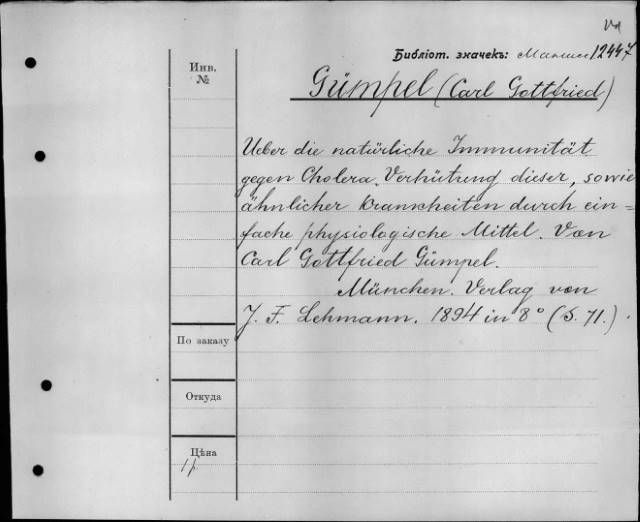 Vd
Библіот. значекъ: 12447
Инв.
№
Gümpel (Carl Gottfried)
Ueber die natürliche Immunität
gegen Cholera. Verhütung dieser, sowie
ähnlicher Krankheiten durch ein=
fache physiologische Mittel. Von
Carl Gottfried Gümpel.
München. Verlag von
J. F. Lehmann. 1894 in 8° (S. 71.)
По заказу
Откуда
Цѣна
1 р.